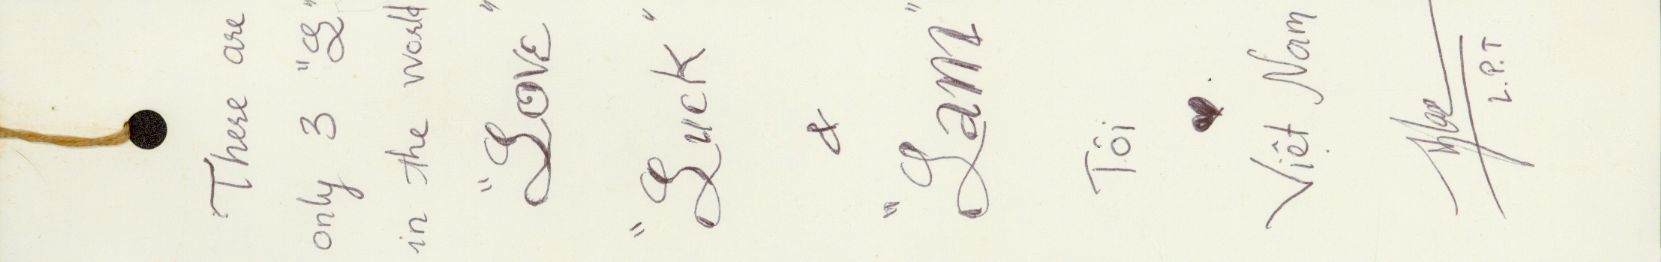 There are
only 3 "L"
in the world
"Love"
"Luck"
&
"Lam"
Tôi
♥
Việt Nam
L.P.T